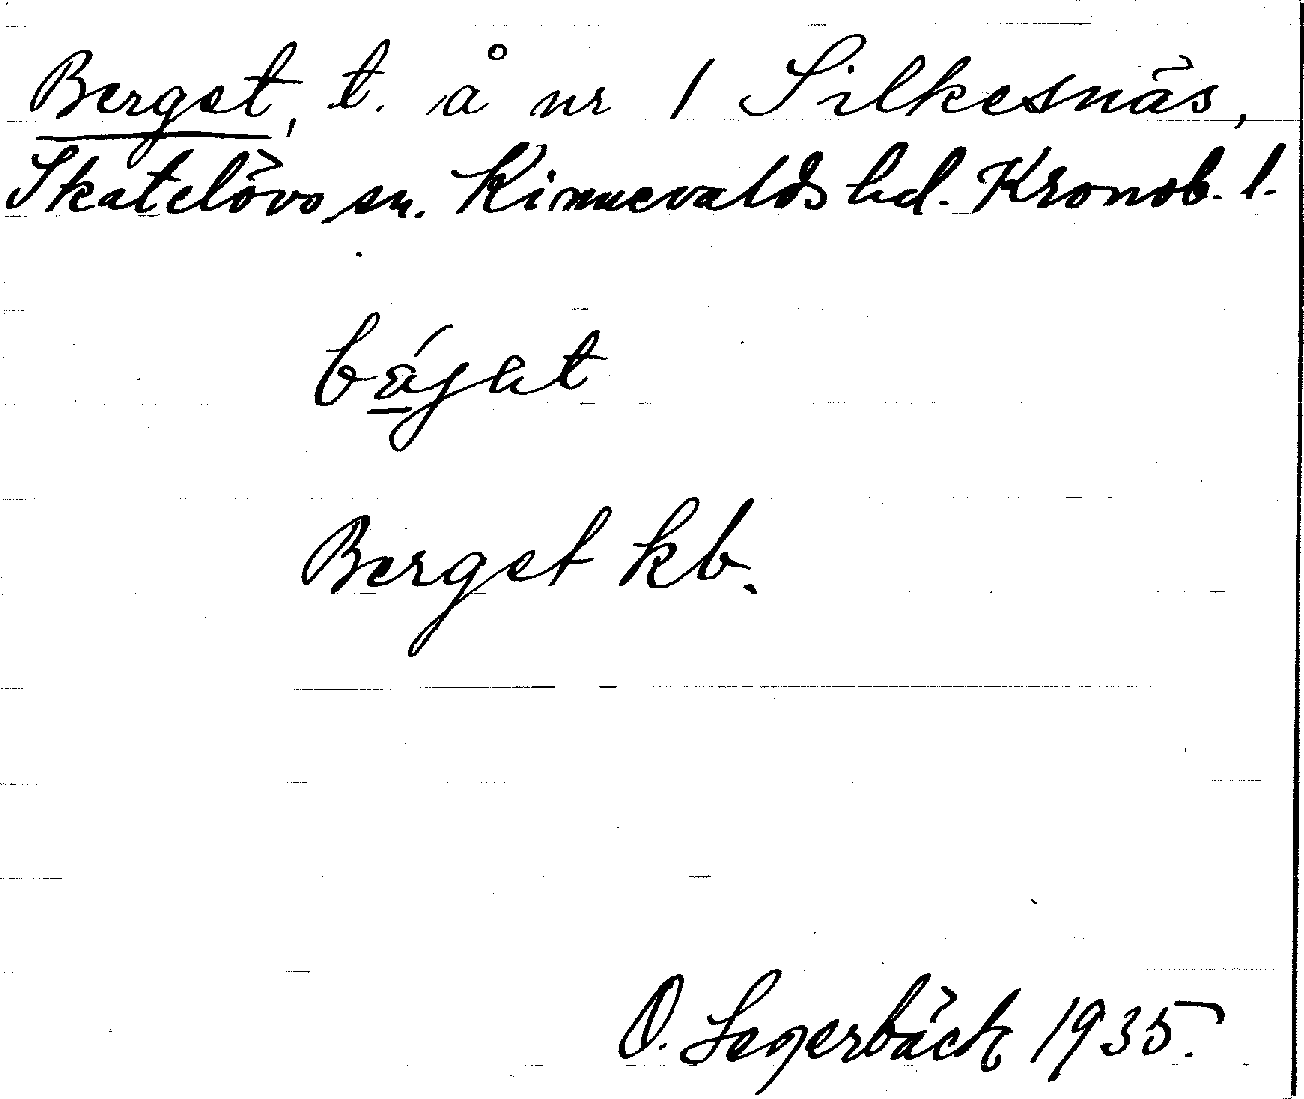 Berget, t. å nr 1 Silkesnäs,
Skatelövs sn. Kinnevalds hd. Kronob. l.
Berget kb.
O. Segerbäck 1935.